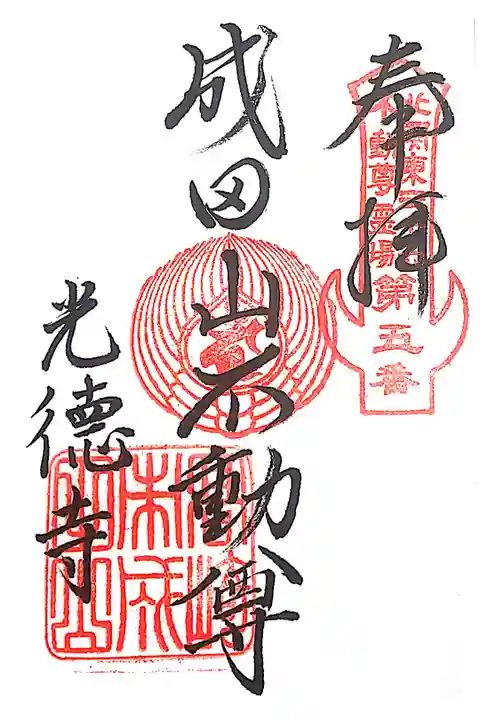 奉拝
北関東三十六
不動尊霊場第五番
成田山不動尊
光徳寺